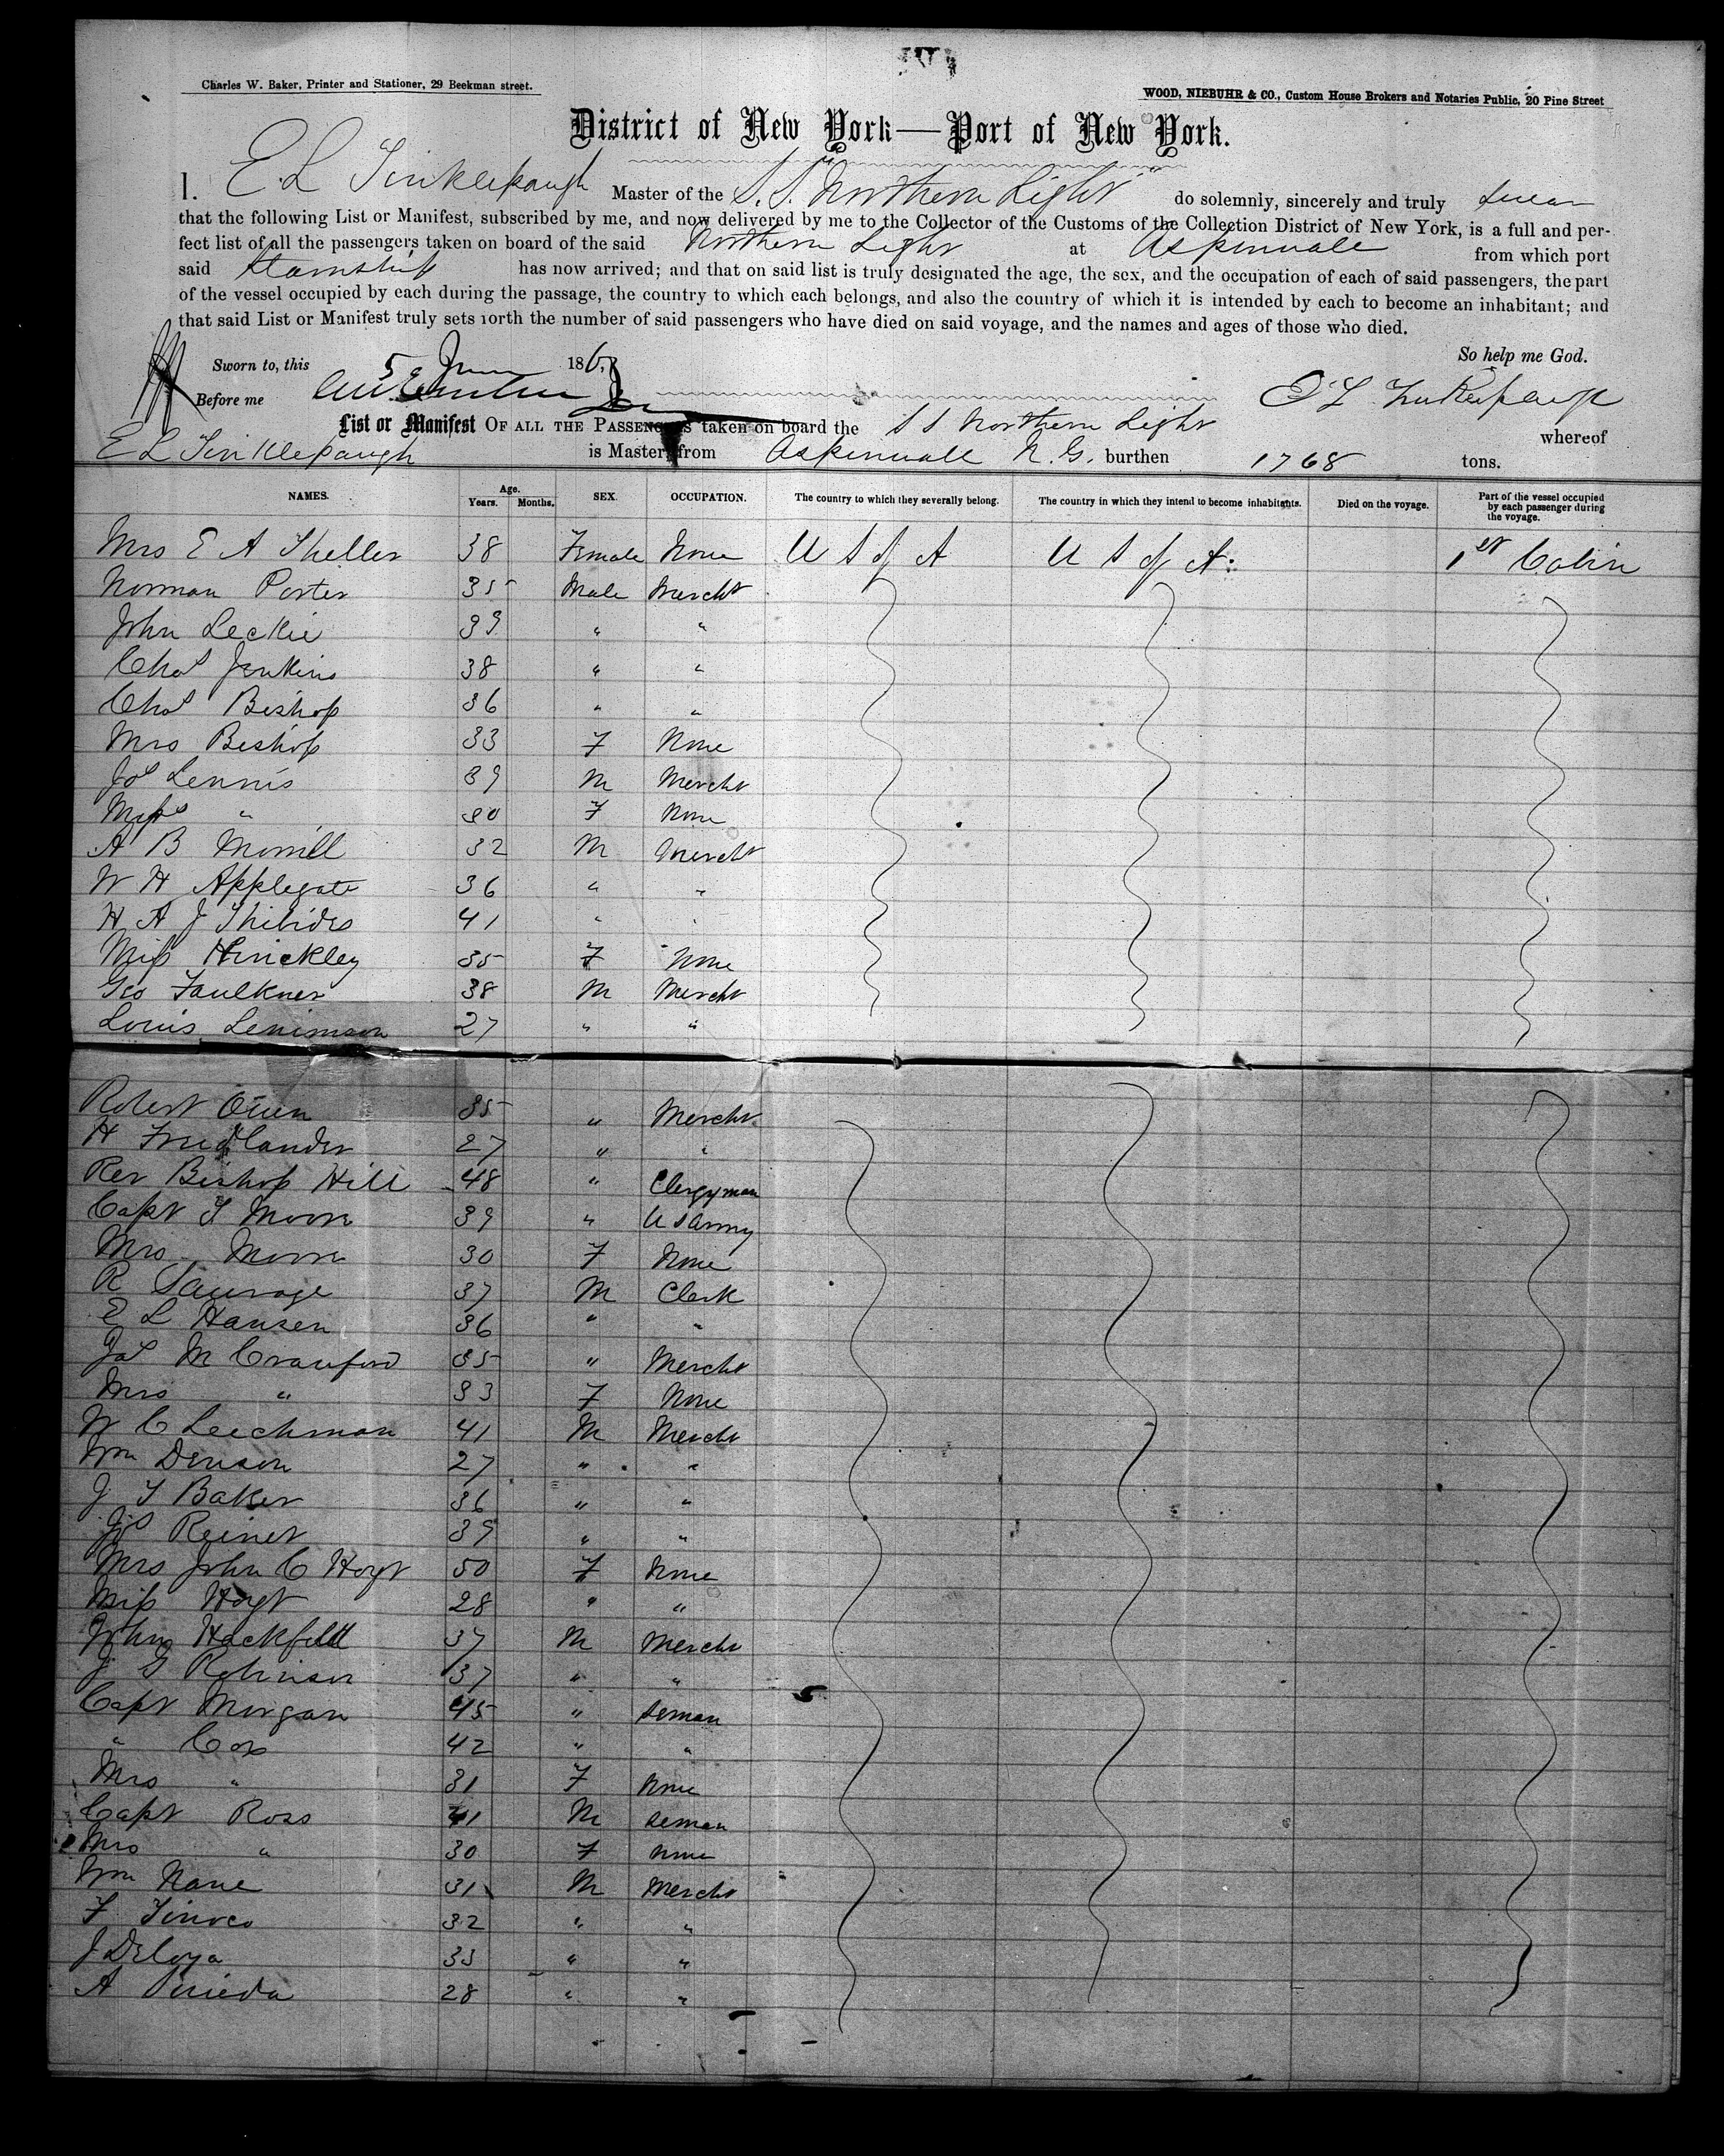 Charles W. Baker, Printer and Stationer, 29 Beekman street.
WOOD, NIEBUHR & CO., Custom House Brokers and Notaries Public, 20 Pine Street
District of New York—Port of New York.
I. E. L Tinklepaugh Master of the S. S. "Northern Light" do solemnly, sincerely and truly swear
that the following List or Manifest, subscribed by me, and now delivered by me to the Collector of the Customs of the Collection District of New York, is a full and per-
fect list of all the passengers taken on board of the said Northern Light at Aspinwall from which port
said Steamship has now arrived; and that on said list is truly designated the age, the sex, and the occupation of each of said passengers, the part
of the vessel occupied by each during the passage, the country to which each belongs, and also the country of which it is intended by each to become an inhabitant; and
that said List or Manifest truly sets forth the number of said passengers who have died on said voyage, and the names and ages of those who died.
So help me God.
Sworn to, this 5 June 186
Before me
E L Tinklepaugh
List or Manifest OF ALL THE PASSENGERS taken on board the S S Northern Light whereof
E L Tinklepaugh is Master, from Aspinwall N. G. burthen 1768 tons.
NAMES. Age. Years. Months. SEX. OCCUPATION. The country to which they severally belong. The country in which they intend to become inhabitants. Died on the voyage. Part of the vessel occupied by each passenger during the voyage.
Mrs E A Sheller 38 Female None U S of A U S of A. 1st Cabin
Norman Porter 35 Male Mercht
John Leckie 39 " "
Chas Jenkins 38 " "
Chas Bishop 36 " "
Mrs Bishop 33 F None
Jos Lennis 39 M Mercht
" 30 F None
A B Morrill 32 M Mercht
W H Applegate 36 " "
H A J 41 " "
Miss Hinckley 35 F None
Geo Faulkner 38 M Mercht
Louis 27 " "
Robert Owen 35 " Mercht
H Friedlander 27 " "
Rev Bishop Hill 48 " Clergyman
Capt T Moore 39 " U S Army
Mrs Moore 30 F None
R Sauvage 37 M Clerk
E L Hansen 36 " "
Jas M Crawford 35 " Mercht
Mrs " 33 F None
W C Leechman 41 M Mercht
Wm Denson 27 " "
J T Baker 36 " "
Jos Reiner 39 " "
Mrs John C Hoyt 50 F None
Miss Hoyt 28 " "
John Hackfeld 37 M Mercht
J G Robinson 37 " "
Capt Morgan 45 " Seman
" Cox 42 " "
Mrs " 31 F None
Capt Ross 41 M Seman
Mrs " 30 F None
Wm Nane 31 M Mercht
F Tinoco 32 " "
J DeLoya 33 " "
A Pineda 28 " "